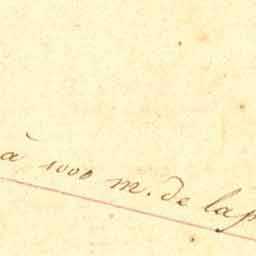 à 1000 m. de la